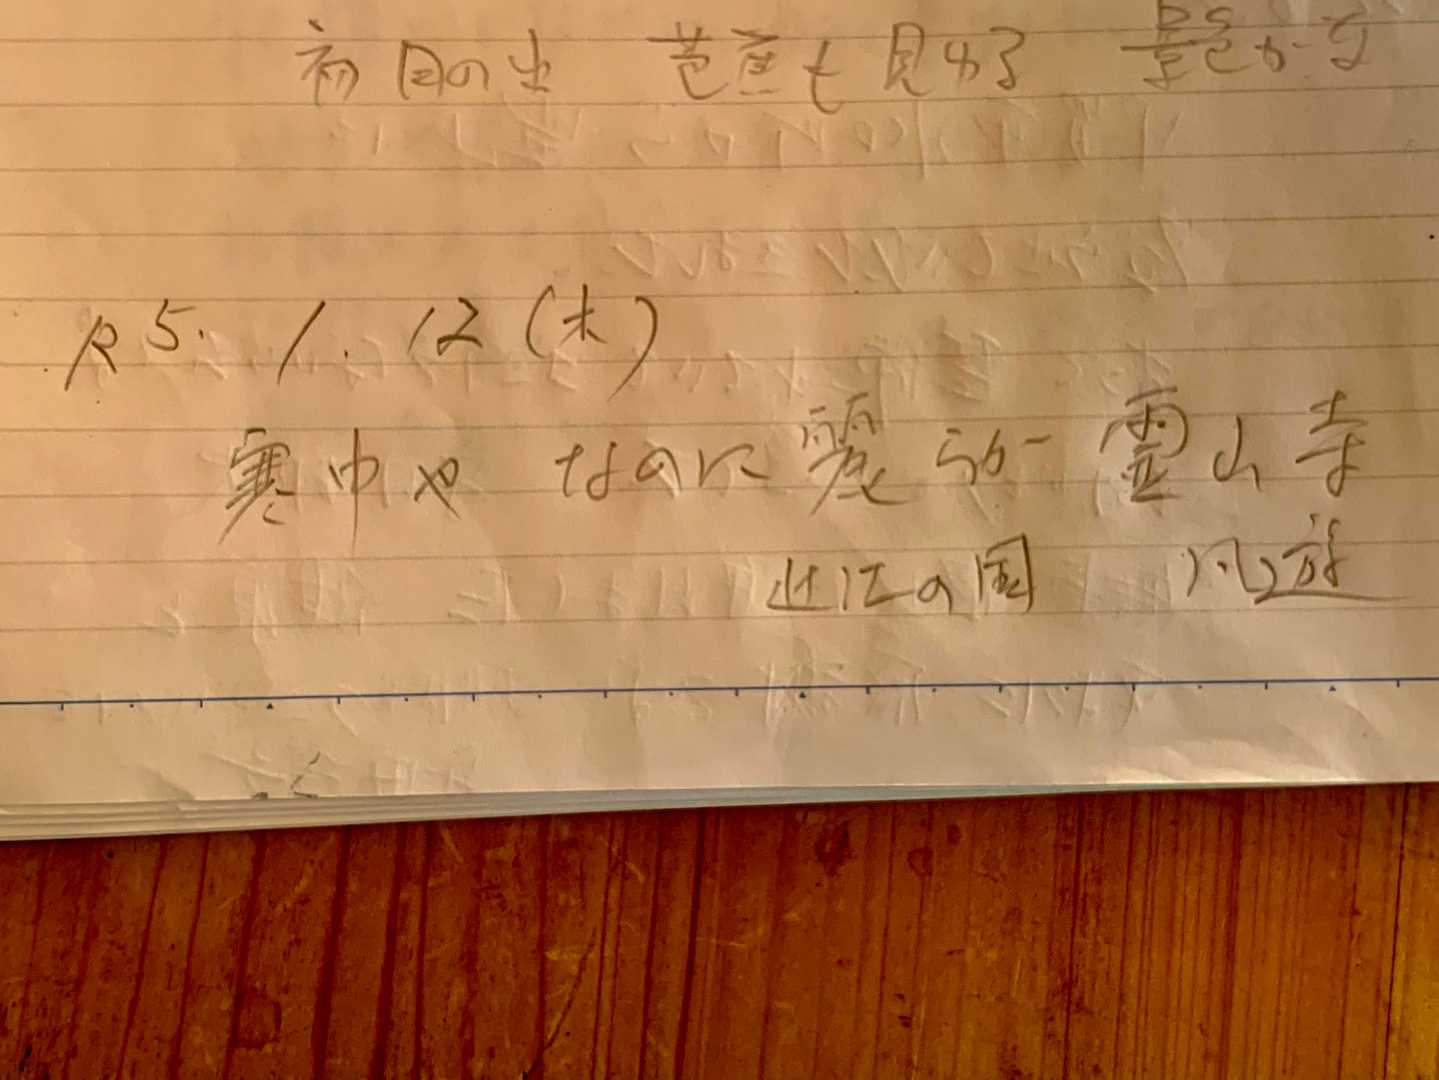 初日の出 芭蕉も見仰る 景色かな
R5. 1. 12 (木)
寒中や なのに霞らむ 霊山寺
近江の国 風遊